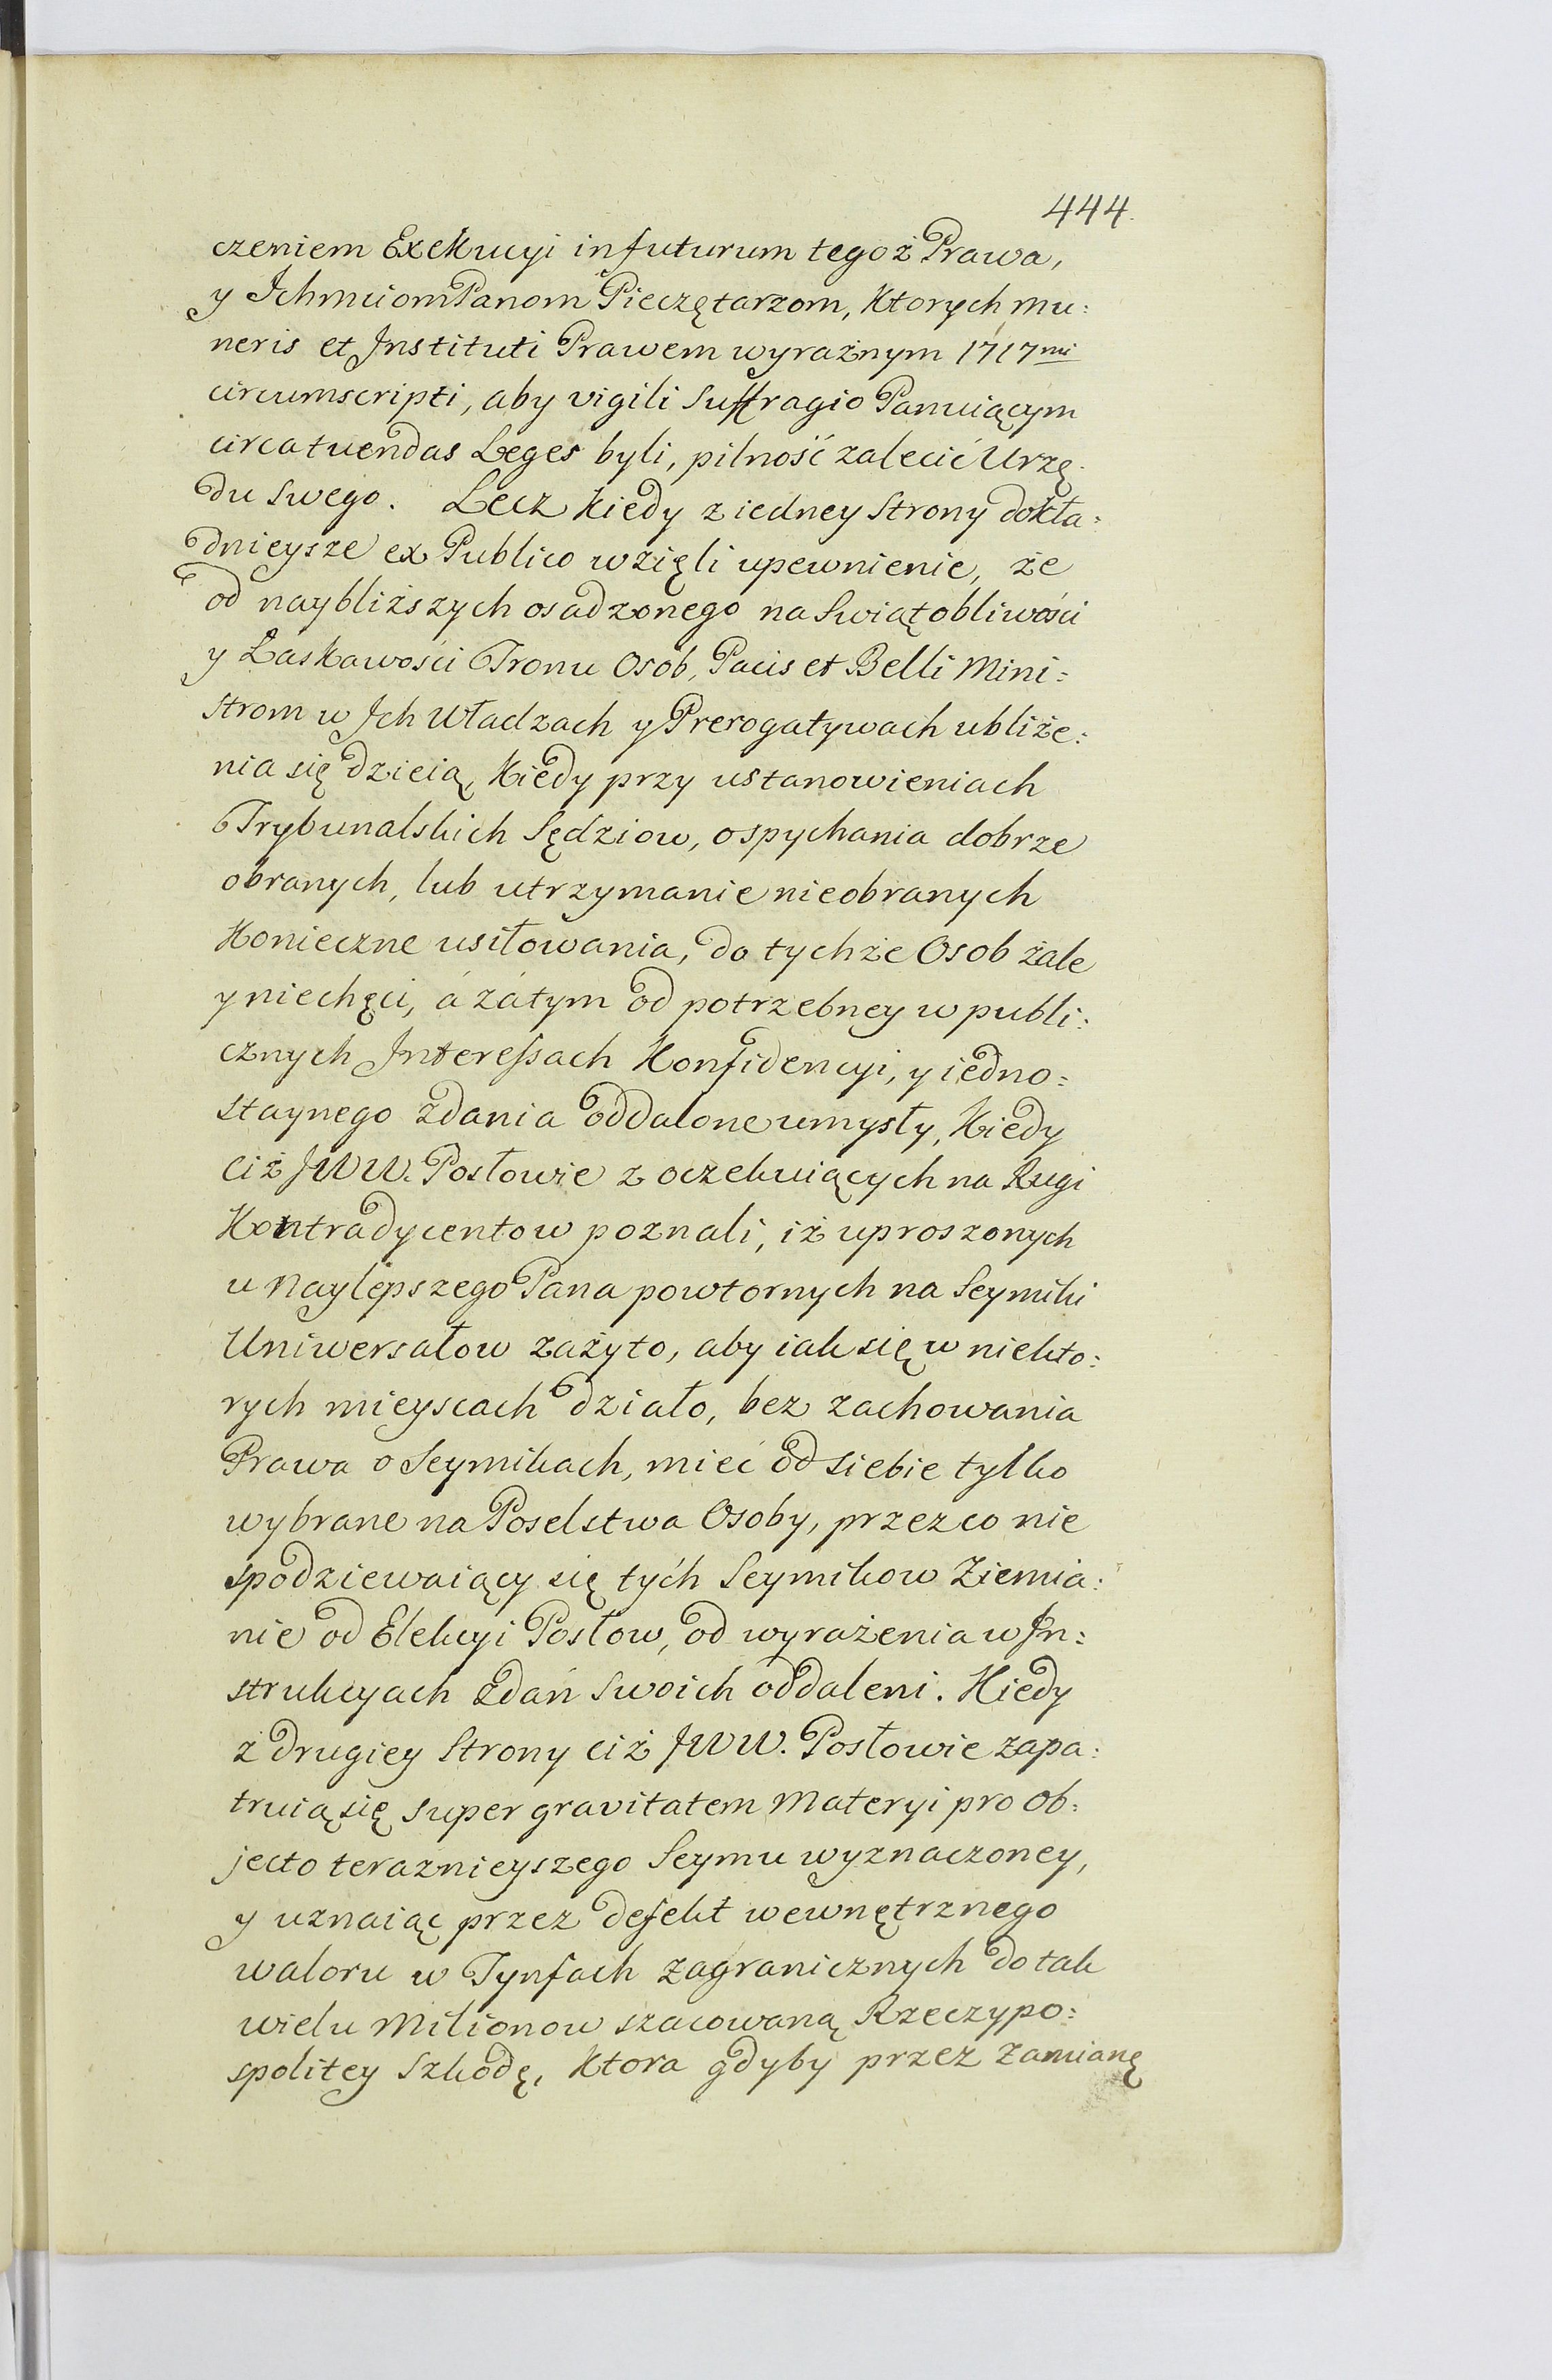 444.
czeniem Exekucyi in futurum tegoż Prawa,
y Ichmciom Panom Pieczętarzom, Ktorych mu:
neris et Instituti Prawem wyraźnym 1717mi
circumscripti, aby vigili Suffragio Panuiącym
circa tuendas Leges byli, pilność zalecić Urzę:
du swego. Lecz Kiedy z iedney Strony dokła:
dnieysze ex Publico wzięli upewnienie, że
od naybliższych osadzonego na Swiątobliwości
y Łaskawości Tronu Osob, Pacis et Belli Mini:
strom w Ich Władzach y Prerogatywach ubliże:
nia się dzieią, Kiedy przy ustanowieniach
Trybunalskich Sędziow, o spychania dobrze
obranych, lub utrzymanie nieobranych
Konieczne usiłowania, do tychże Osob żale
y niechęci, á zátym od potrzebney w publi:
cznych Interessach Konfidencyi, y iedno:
staynego zdania oddalone umysły, Kiedy
ciż JWW. Posłowie z oczekuiących na Rugi
Kontradycentow poznali, iż uproszonych
u Naylepszego Pana powtornych na Seymiki
Uniwersałow zażyto, aby iak się w niekto:
rych mieyscach działo, bez zachowania
Prawa o Seymikach, mieć od siebie tylko
wybrane na Poselstwa Osoby, przez co nie
spodziewaiący się tych Seymikow Ziemia:
nie od Elekcyi Posłow, od wyrażenia w In:
strukcyach zdań swoich oddaleni. Kiedy
z drugiey Strony ciż JWW. Posłowie zapa:
truią się super gravitatem Materyi pro Ob:
jecto teraznieyszego Seymu wyznaczoney,
y uznaiąc przez defekt wewnętrznego
waloru w Tynfach zagranicznych do tak
wielu Milionow szacowaną Rzeczypo:
spolitey Szkodę, Ktora gdyby przez zamianę